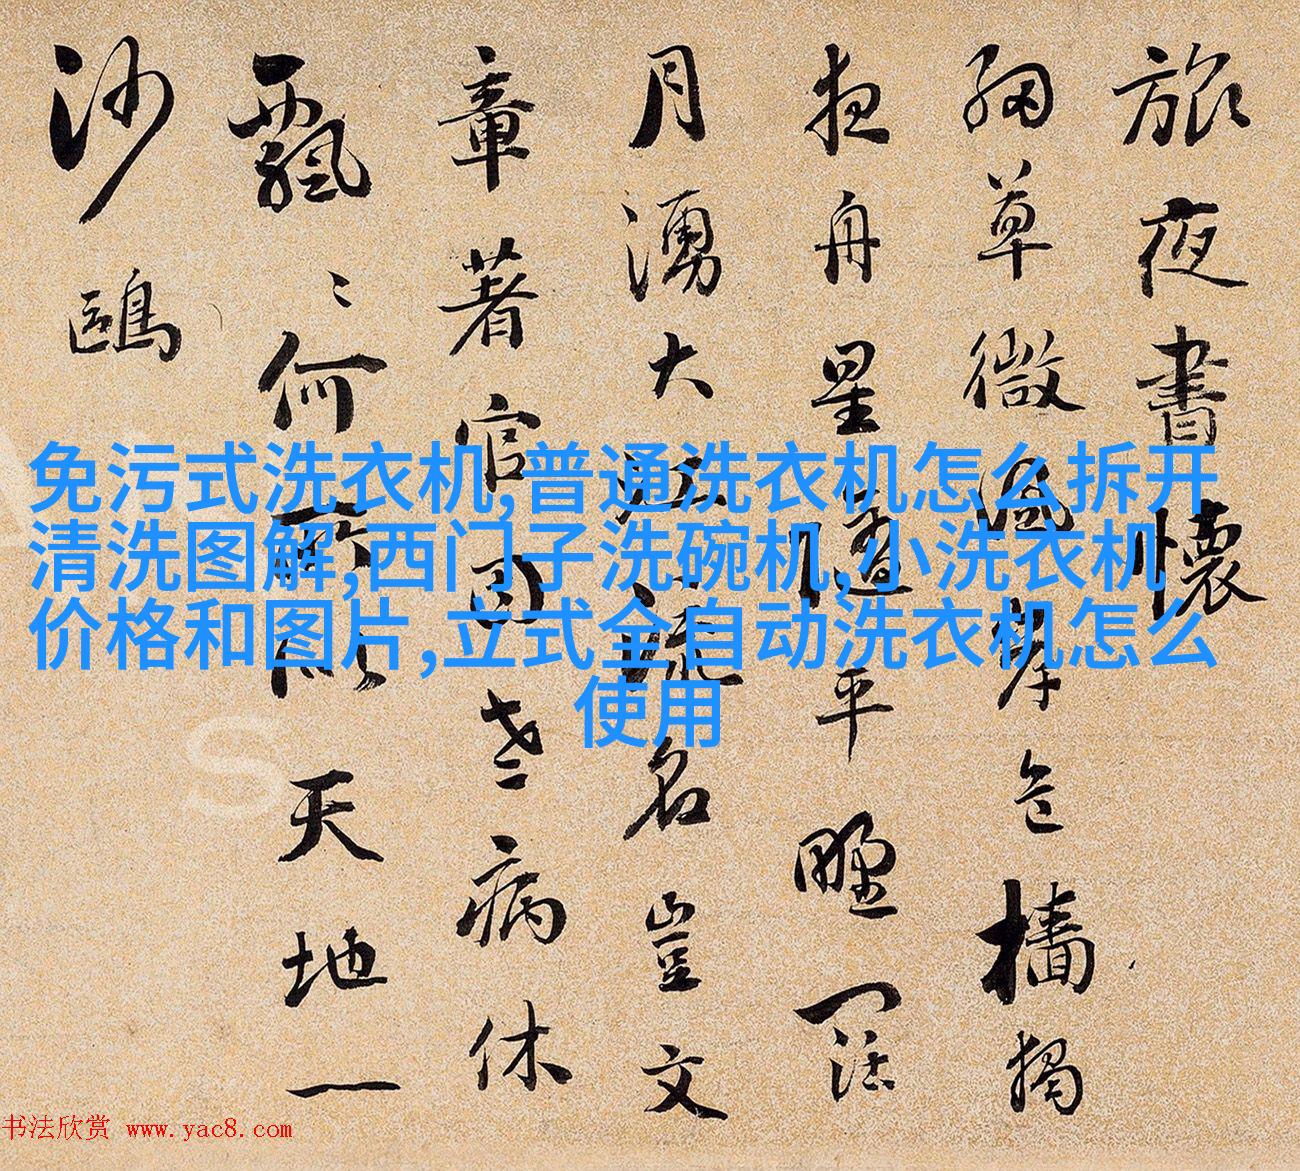 旅夜書懷
細草微風岸危檣獨
夜舟星隨平野闊
月湧大江流名豈文
章著官因老病休
飄〻何所似天地一
沙鷗
免污式洗衣机,普通洗衣机怎么拆开
清洗图解,西门子洗碗机,小洗衣机
价格和图片,立式全自动洗衣机怎么
使用
书法欣赏 www.yac8.com